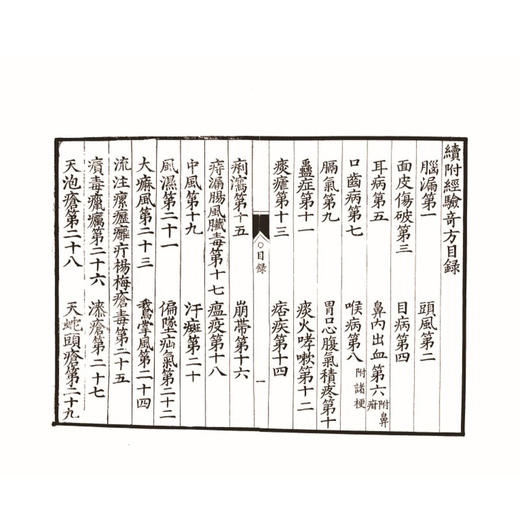 續附經驗奇方目録
腦漏第一 頭風第二
面皮傷破第三 目病第四
耳病第五 鼻内出血第六 附鼻疳
口齒病第七 喉病第八 附諸梗
膈氣第九 胃口心腹氣積疼第十
蠱症第十一 痰火哮嗽第十二
痰瘧第十三 痞疾第十四
○目録 一
痢瀉第十五 崩帶第十六
痔漏腸風臟毒第十七 瘟疫第十八
中風第十九 汗癍第二十
風濕第二十一 偏墜疝氣第二十二
大痳風第二十三 鵞掌風第二十四
流注瘰癧癰疔楊梅瘡毒第二十五
毒第二十六 漆瘡第二十七
天泡瘡第二十八 天蛇頭瘡第二十九